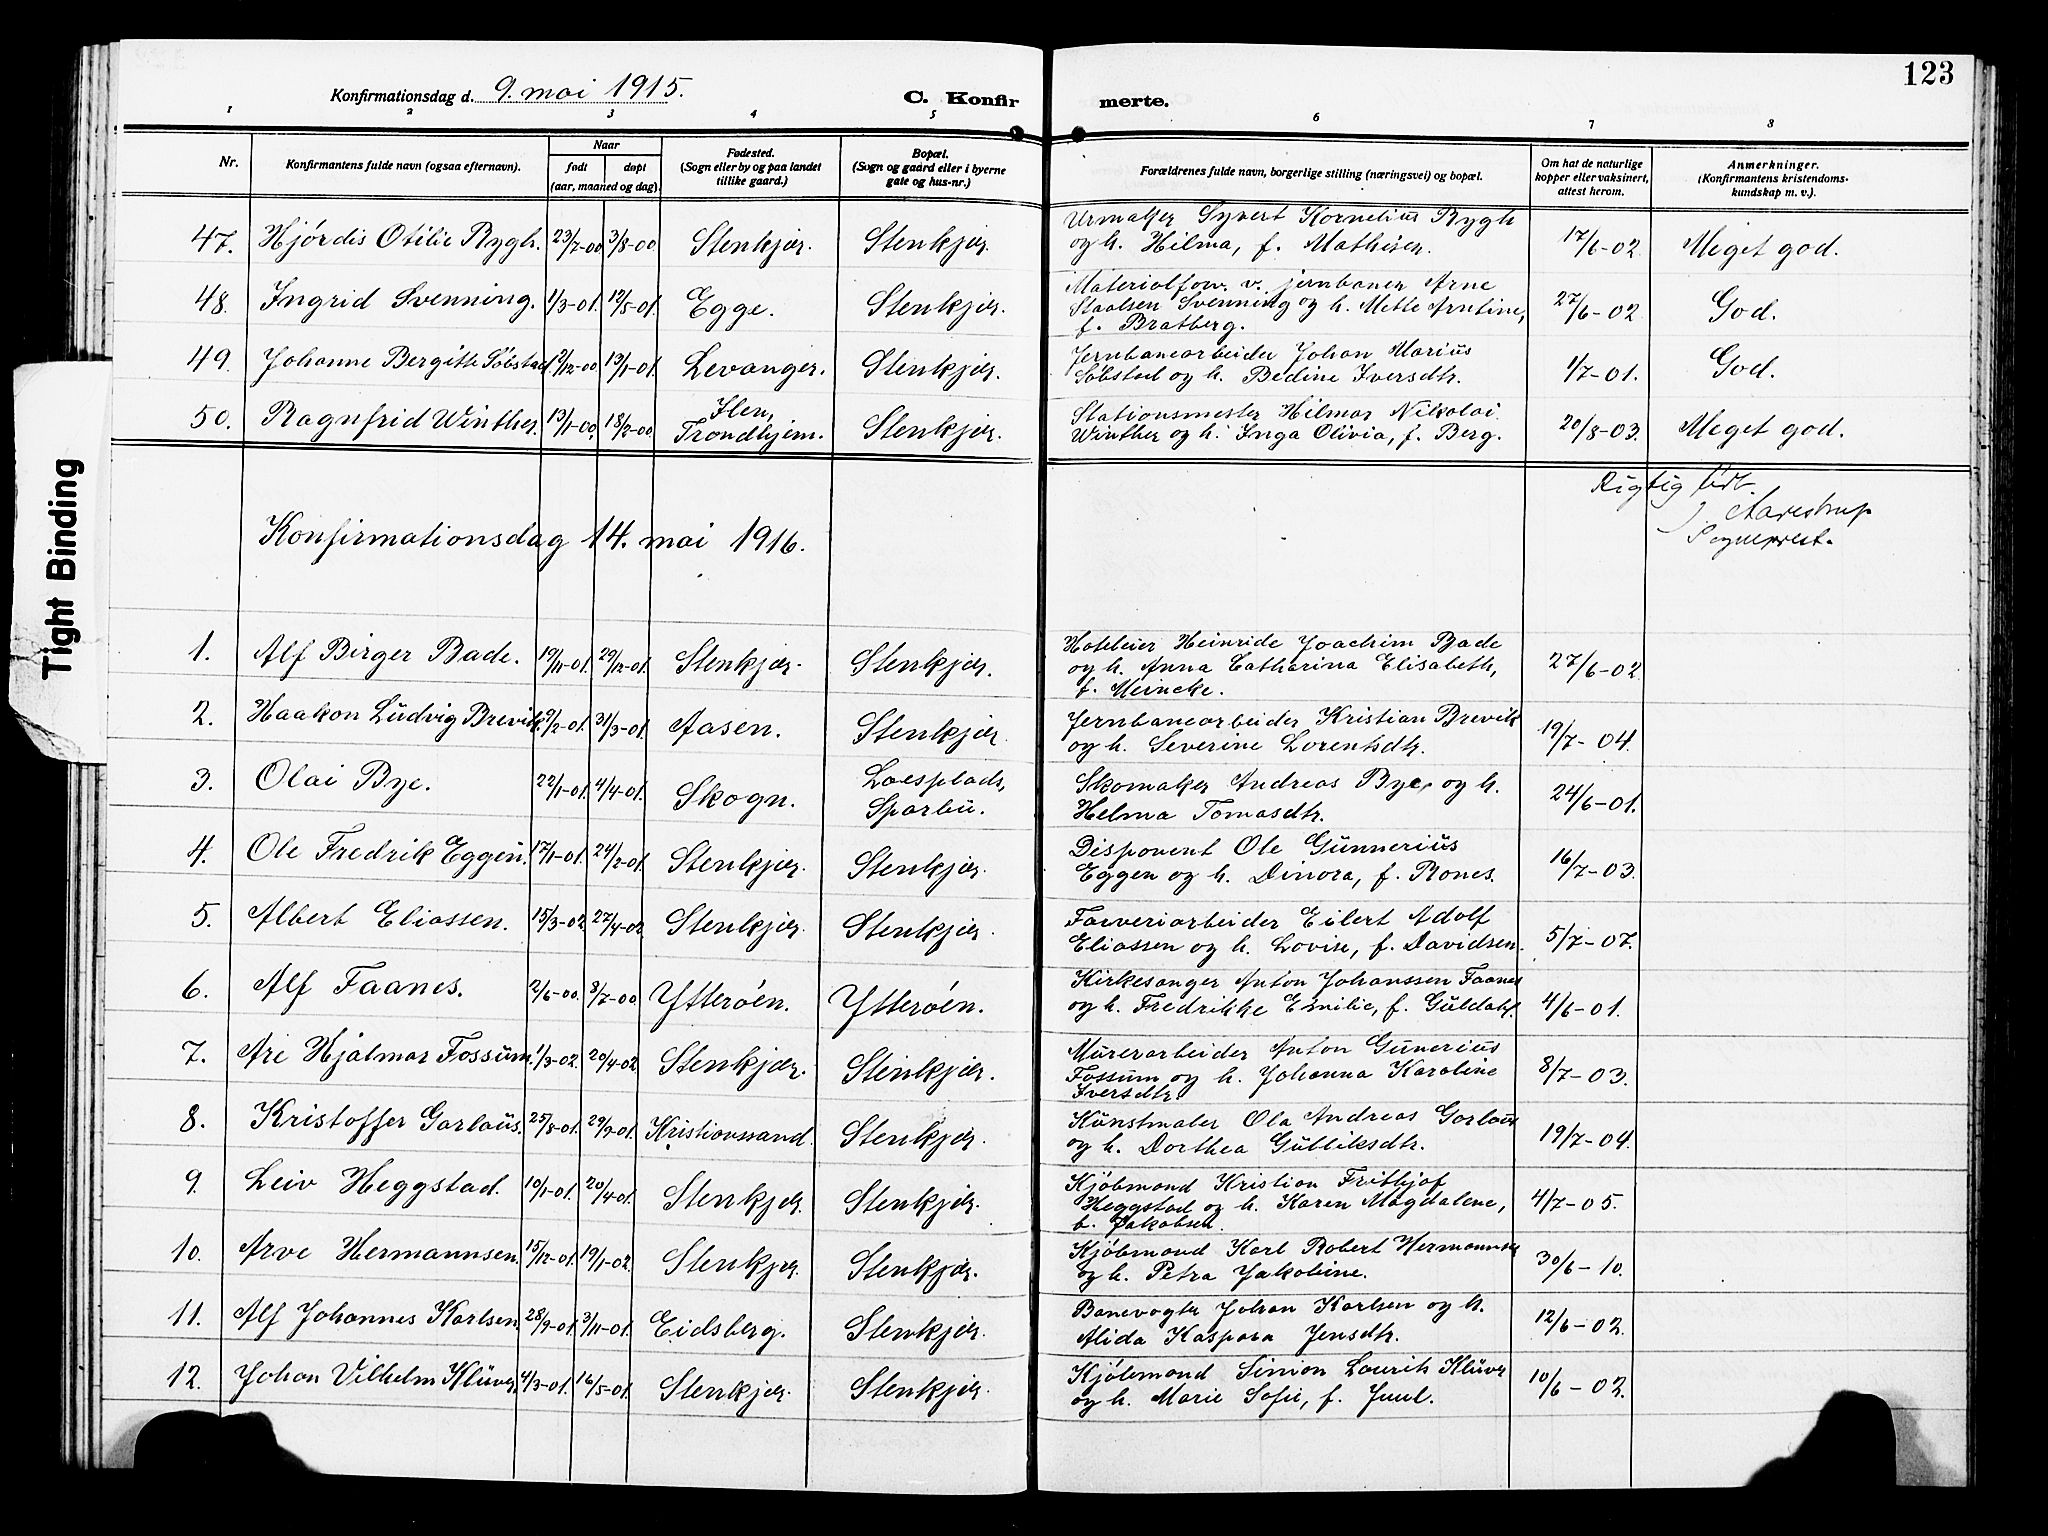 123
Konfirmationsdag d. 9. mai 1915. C. Konfirmerte.
1 2 3 4 5 6 7 8
Nr. Konfirmantens fulde navn (ogsaa efternavn). Naar født døpt (aar, maaned og dag). Fødested. (Sogn eller by og paa landet tillike gaard.) Bopæl. (Sogn og gaard eller i byerne gate og hus-nr.) Forældrenes fulde navn, borgerlige stilling (næringsvei) og bopæl. Om hat de naturlige kopper eller vaksinert, attest herom. Anmerkninger. (Konfirmantens kristendomskundskap m. v.).
47. Hjördis Otilie Rygh. 23/7-00 3/8-00 Stenkjær. Stenkjær. Urmaker Syvert Kornelius Rygh
og h. Hilma, f. Mathisen. 17/6-02 Meget god.
48. Ingrid Svenning. 1/3-01. 12/5-01. Egge. Stenkjær. Materialforv. v. jernbanen Arne
Staalsen Svenning og h. Mette Arntine,
f. Bratberg. 27/6-02 God.
49. Johanne Bergitte Söbstad 9/12-00 13/1-01. Levanger. Stenkjær. Jernbanearbeider Johan Marius
Söbstad og h. Bedine Iversdtr. 1/7-01. God.
50. Ragnfrid Winther. 13/1-00. 18/2-00 Ilen, Trondhjem. Stenkjær. Stationsmester Hilmar Nikolai
Winther og h. Inga Olivia, f. Berg. 20/8-03. Meget god.
Rigtig ført.
J. Aarestrup
Sogneprest.
Konfirmationsdag 14. mai 1916.
1. Alf Birger Bade. 19/11-01. 29/12-01. Stenkjær. Stenkjær. Hoteleier Heinride Joachim Bade
og h. Anna Catharina Elisabeth,
f. Meincke. 27/6-02
2. Haakon Ludvig Brevik 9/2-01. 31/3-01. Aasen. Stenkjær Jernbanearbeider Kristian Brevik
og h. Severine Lorentsdtr. 19/7-04.
3. Olai Bye. 22/1-01. 4/4-01. Skogn. Loesplads, Sparbu. Skomaker Andreas Bye, og h.
Helma Tomasdtr. 24/6-01.
4. Ole Fredrik Eggen. 17/1-01. 24/2-01. Stenkjær. Stenkjær. Disponent Ole Gunnerius
Eggen og h. Dinora, f. Rones. 16/7-03.
5. Albert Eliassen. 15/3-02 27/4-02 Stenkjær. Stenkjær. Farveriarbeider Eilert Adolf
Eliassen og h. Lovise, f. Davidsen. 5/7-07.
6. Alf Faanes. 2/6-00. 8/7-00. Ytteröen. Ytteröen. Kirkesanger Anton Johanssen Faanes
og h. Fredrikke Emilie, f. Guldahl. 4/6-01.
7. Are Hjalmar Fossum. 1/3-02. 20/4-02 Stenkjær. Stenkjær. Murerarbeider Anton Gunerius
Fossum og h. Johanna Karoline
Iversdtr. 8/7-03.
8. Kristoffer Garlaus. 25/8-01. 29/9-01. Kristianssand. Stenkjær. Kunstmaler Ola Andreas Garlaus
og h. Dorthea Gulliksdtr. 19/7-04.
9. Leiv Heggstad. 10/1-01. 20/4-01. Stenkjær. Stenkjær. Kjöbmand Kristian Frithjof
Heggstad og h. Karen Magdalene,
f. Jakobsen. 4/7-05.
10. Arve Hermannsen. 15/12-01. 19/1-02. Stenkjær. Stenkjær. Kjöbmand Karl Robert Hermannsen
og h. Petra Jakobine. 30/6-10.
11. Alf Johannes Karlsen. 28/9-01. 3/11-01. Eidsberg. Stenkjær. Banevogter Johan Karlsen og h.
Alida Kaspara Jensdtr. 12/6-02.
12. Johan Vilhelm Klüver 4/3-01. 16/5-01. Stenkjær. Stenkjær. Kjöbmand Simon Laurits Klüver
og h. Marie Sofie, f. Juul. 10/6-02.
Tight Binding